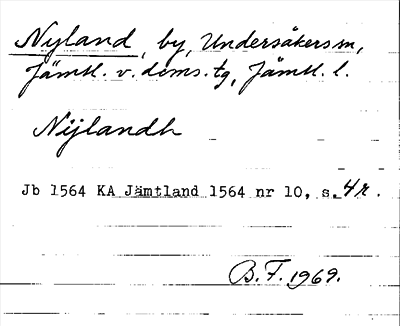 Nyland, by, Undersåkers sn,
Jämtl. v. doms. tg, Jämtl. l.
Nijlandh
Jb 1564 KA Jämtland 1564 nr 10, s. 4r.
B.F. 1969.